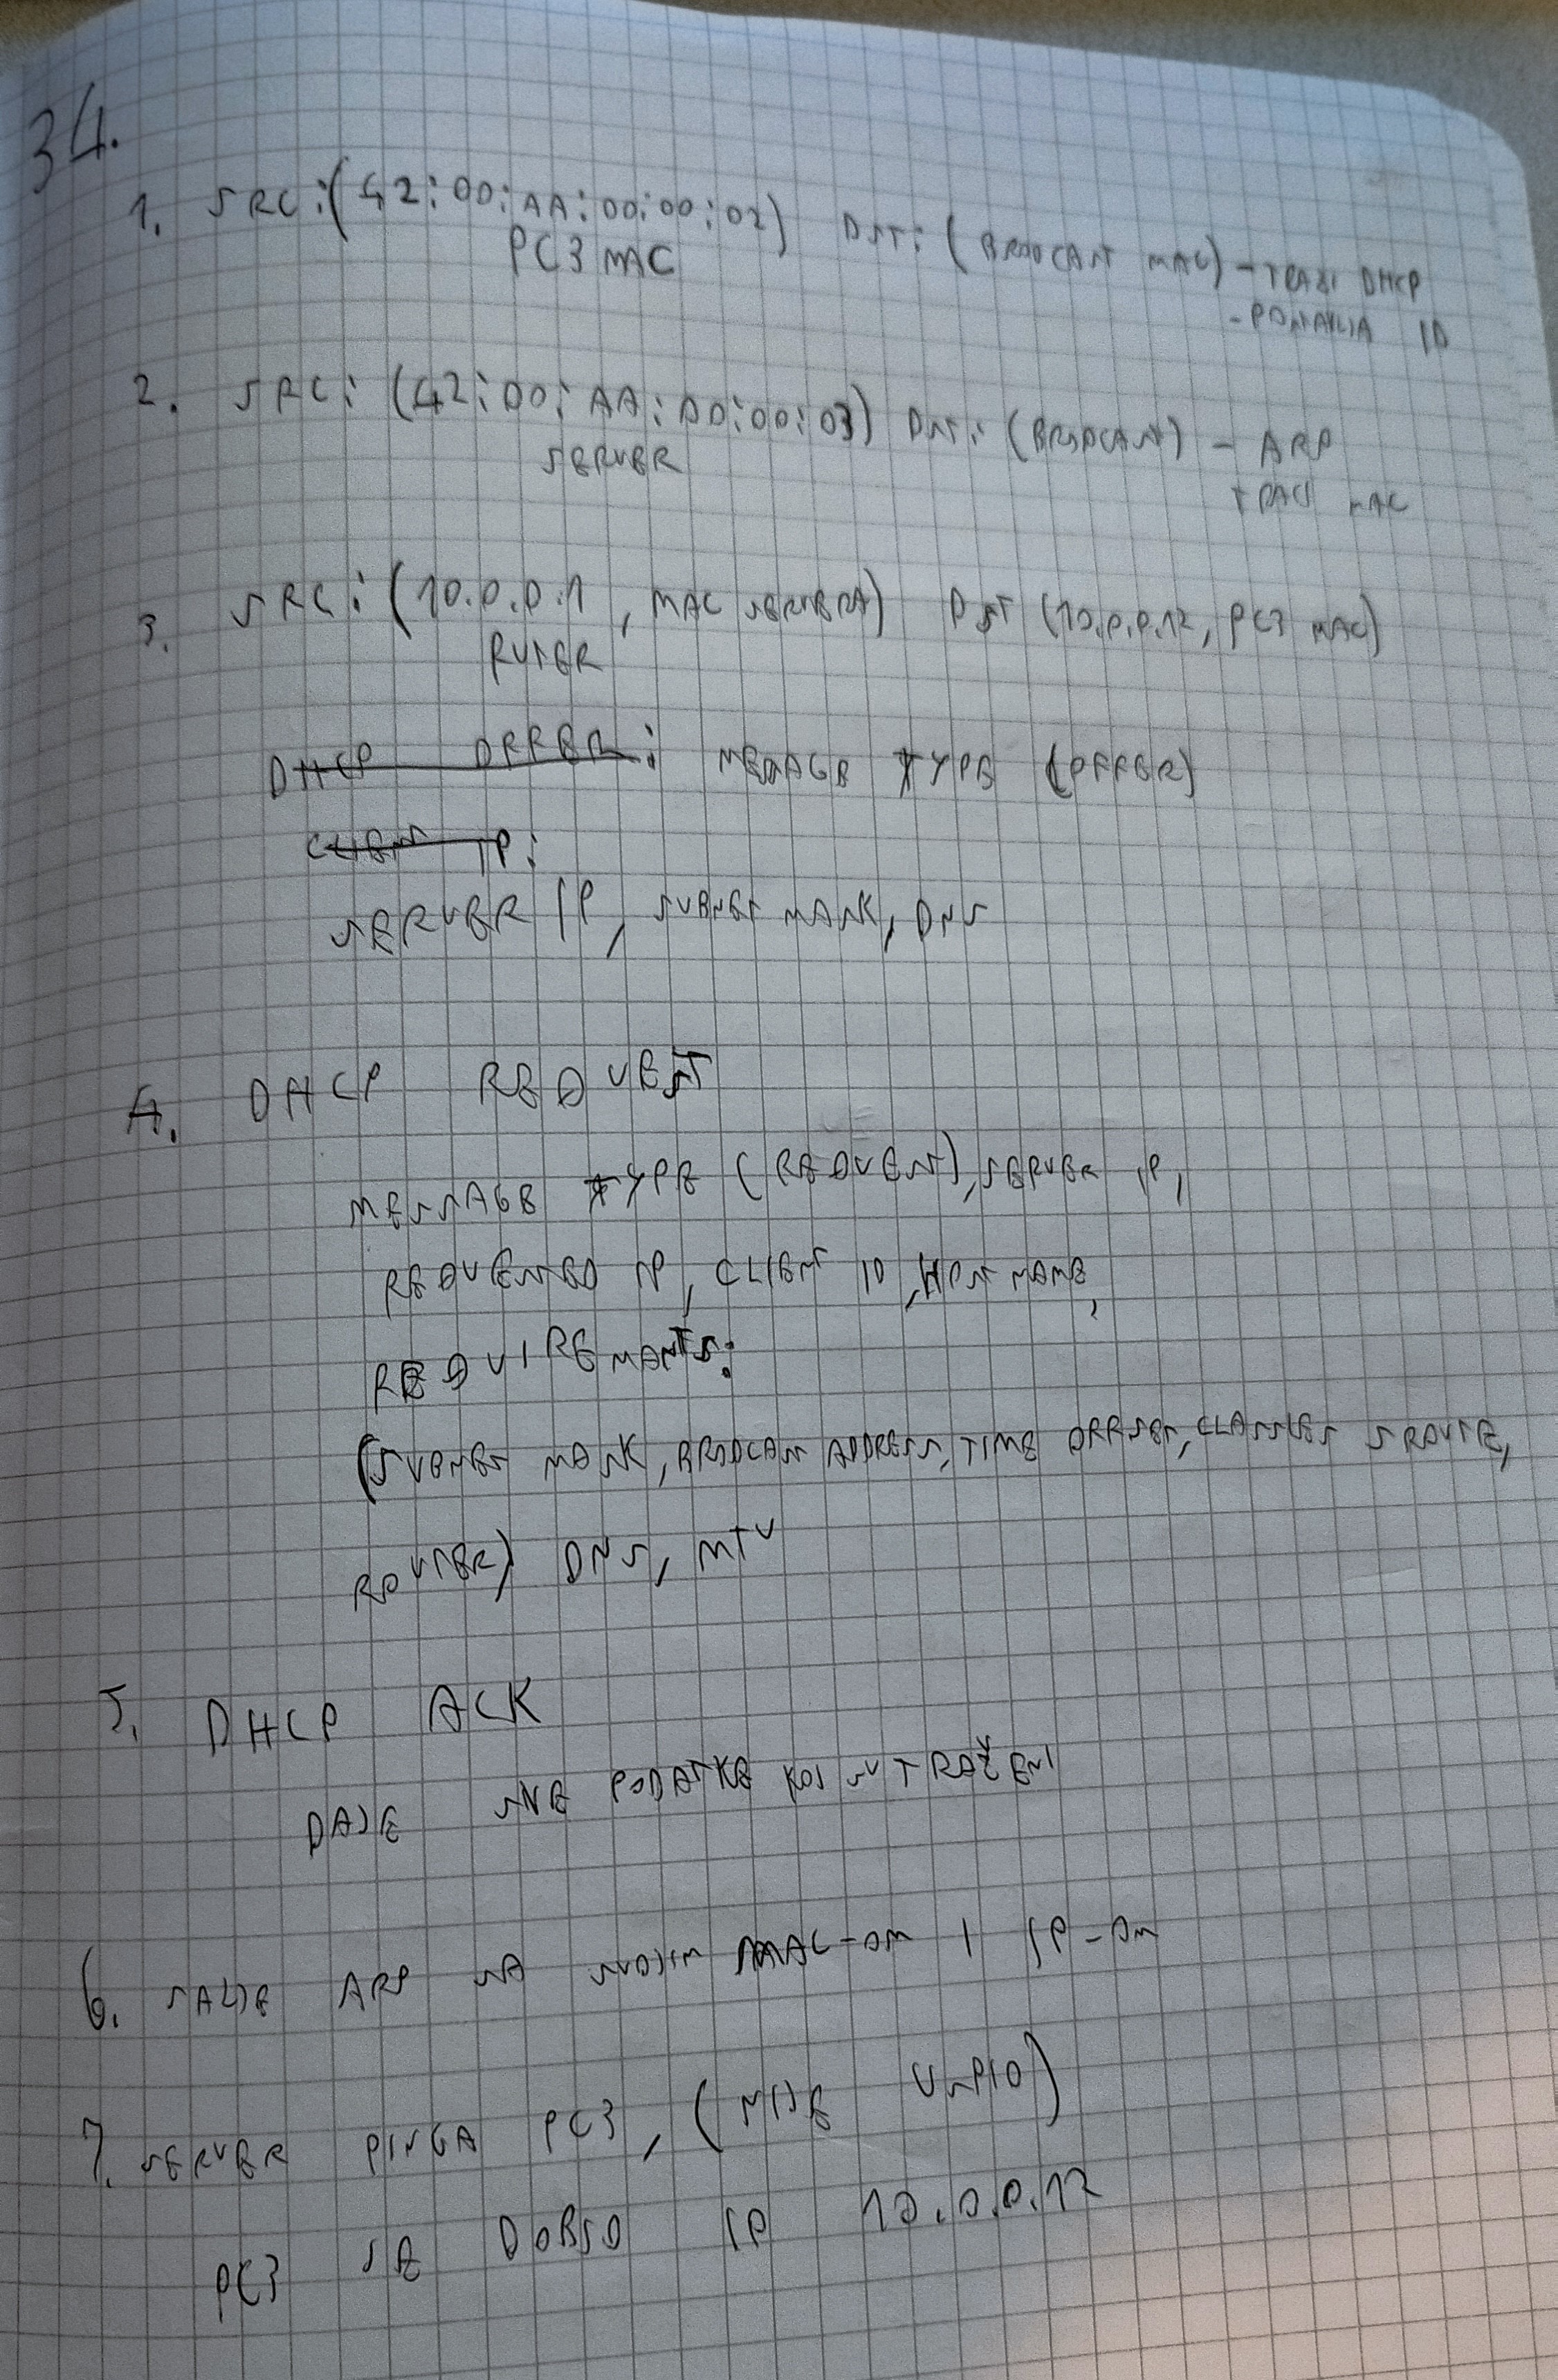 34.
1. SRC: (42:00:AA:00:00:02) DST: (BRODCAST MAC) - TRAZI DHCP
PC3 MAC - POSTAVLJA ID
2. SRC: (42:00:AA:00:00:03) DST: (BRODCAST) - ARP
SERVER TRAZI MAC
3. SRC: (10.0.0.1, MAC SERVERA) DST (10.0.0.12, PC3 MAC)
RUTER
DHCP OFFER: MESSAGE TYPE (OFFER)
CLIENT IP:
SERVER IP, SUBNET MASK, DNS
4. DHCP REQUEST
MESSAGE TYPE (REQUEST), SERVER IP,
REQUESTED IP, CLIENT ID, HOST NAME,
REQUIREMENTS:
(SUBNET MASK, BRODCAST ADDRESS, TIME OFFSET, CLASSLES S ROUTE,
ROUTER) DNS, MTU
5. DHCP ACK
DAJE SVE PODATKE KOJ SU TRAŽENI
6. SALJE ARP SA SVOJIM MAC-OM I IP-OM
7. SERVER PINGA PC3, (NIJE USPIO)
PC3 JE DOBIO IP 10.0.0.12